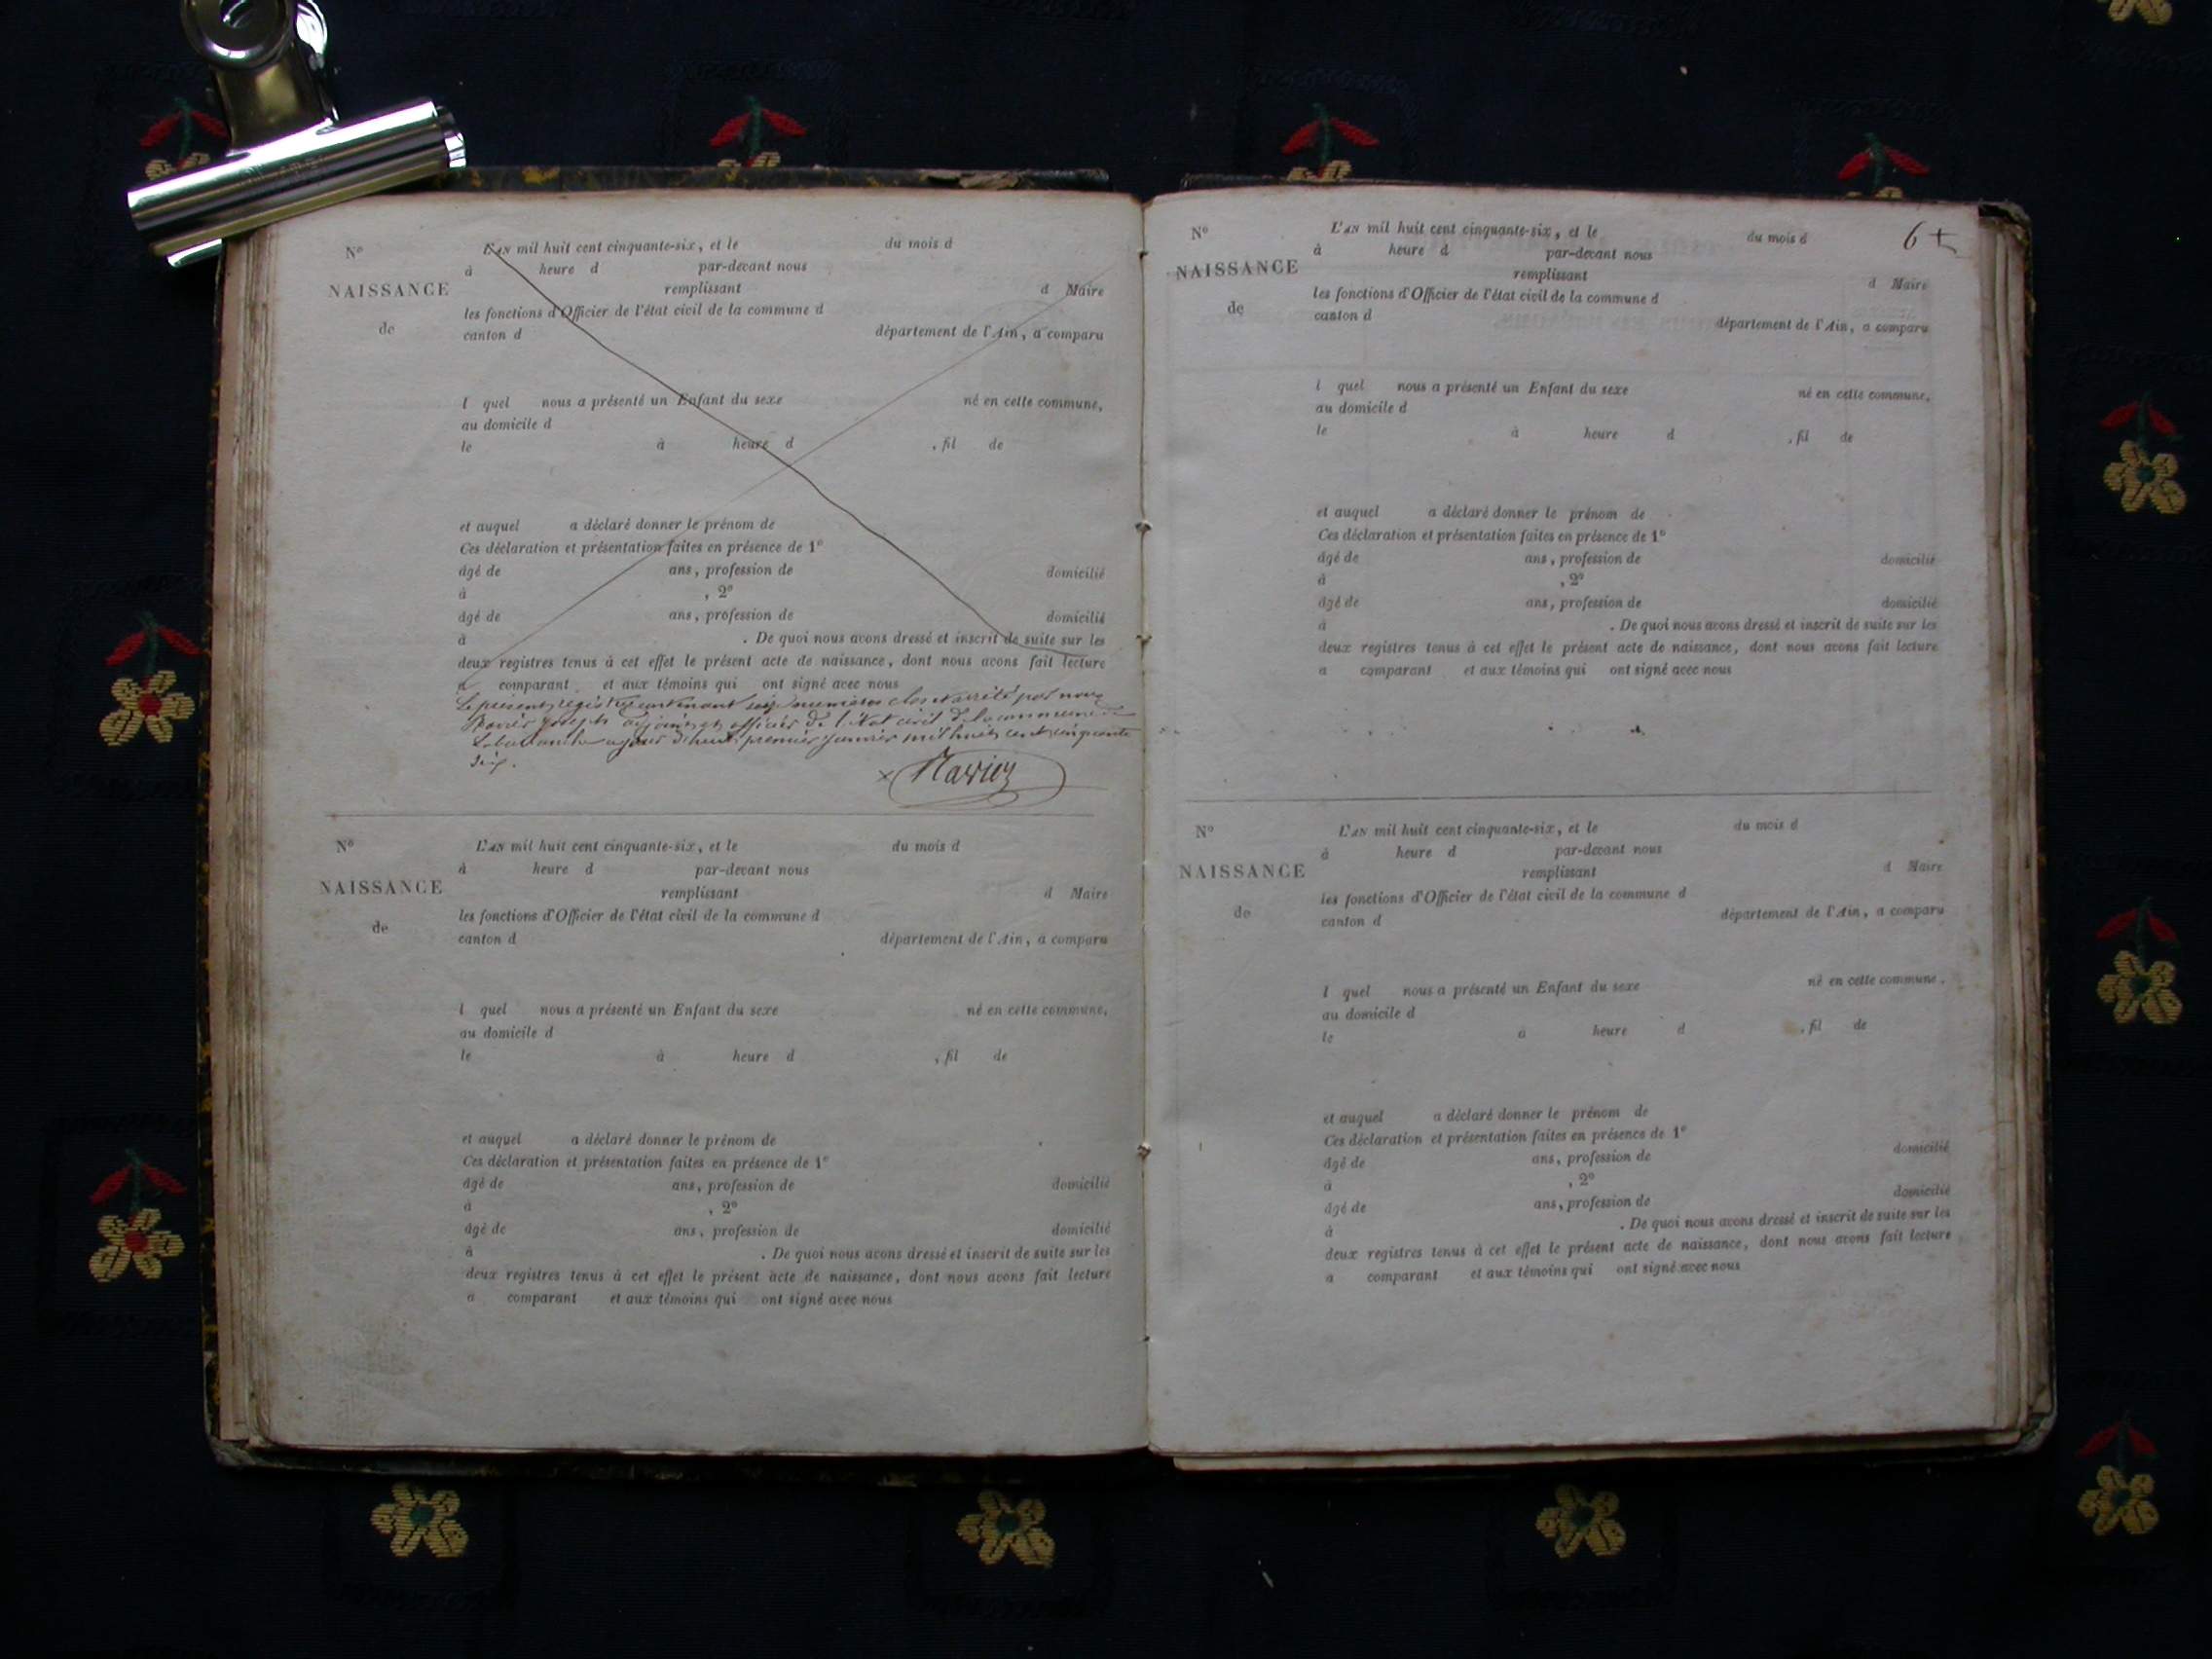 Nº
NAISSANCE
de
L'AN mil huit cent cinquante-six, et le du mois d
à heure d par-devant nous
remplissant d Maire
les fonctions d'Officier de l'état civil de la commune d
canton d département de l'Ain, a comparu
l quel nous a présenté un Enfant du sexe né en cette commune,
au domicile d
le à heure d , fil de
et auquel a déclaré donner le prénom de
Ces déclaration et présentation faites en présence de 1º
âgé de ans, profession de domicilié
à , 2º
âgé de ans, profession de domicilié
à . De quoi nous avons dressé et inscrit de suite sur les
deux registres tenus à cet effet le présent acte de naissance, dont nous avons fait lecture
a comparant et aux témoins qui ont signé avec nous
Le présent registre contenant six numéros clos et arrêté par nous
joseph adjoint et officier de l'état civil de la commune de
a jour d'hui premier janvier mil huit cent cinquante
six.
Nº
NAISSANCE
de
L'AN mil huit cent cinquante-six, et le du mois d
à heure d par-devant nous
remplissant d Maire
les fonctions d'Officier de l'état civil de la commune d
canton d département de l'Ain, a comparu
l quel nous a présenté un Enfant du sexe né en cette commune,
au domicile d
le à heure d , fil de
et auquel a déclaré donner le prénom de
Ces déclaration et présentation faites en présence de 1º
âgé de ans, profession de domicilié
à , 2º
âgé de ans, profession de domicilié
à . De quoi nous avons dressé et inscrit de suite sur les
deux registres tenus à cet effet le présent acte de naissance, dont nous avons fait lecture
a comparant et aux témoins qui ont signé avec nous
6
Nº
NAISSANCE
de
L'AN mil huit cent cinquante-six, et le du mois d
à heure d par-devant nous
remplissant d Maire
les fonctions d'Officier de l'état civil de la commune d
canton d département de l'Ain, a comparu
l quel nous a présenté un Enfant du sexe né en cette commune,
au domicile d
le à heure d , fil de
et auquel a déclaré donner le prénom de
Ces déclaration et présentation faites en présence de 1º
âgé de ans, profession de domicilié
à , 2º
âgé de ans, profession de domicilié
à . De quoi nous avons dressé et inscrit de suite sur les
deux registres tenus à cet effet le présent acte de naissance, dont nous avons fait lecture
a comparant et aux témoins qui ont signé avec nous
Nº
NAISSANCE
de
L'AN mil huit cent cinquante-six, et le du mois d
à heure d par-devant nous
remplissant d Maire
les fonctions d'Officier de l'état civil de la commune d
canton d département de l'Ain, a comparu
l quel nous a présenté un Enfant du sexe né en cette commune.
au domicile d
le à heure d , fil de
et auquel a déclaré donner le prénom de
Ces déclaration et présentation faites en présence de 1º
âgé de ans, profession de domicilié
à , 2º
âgé de ans, profession de domicilié
à . De quoi nous avons dressé et inscrit de suite sur les
deux registres tenus à cet effet le présent acte de naissance, dont nous avons fait lecture
a comparant et aux témoins qui ont signé avec nous